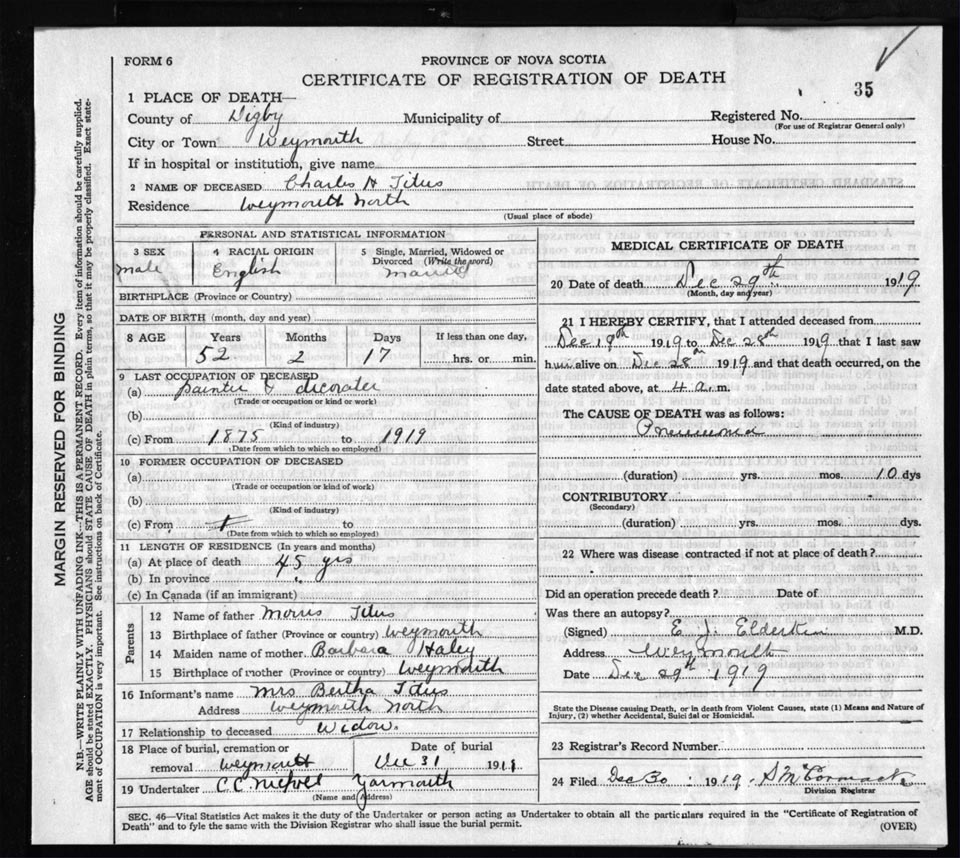 FORM 6
PROVINCE OF NOVA SCOTIA
CERTIFICATE OF REGISTRATION OF DEATH
35
1 PLACE OF DEATH—
County of Digby Municipality of Registered No.
(For use of Registrar General only)
City or Town Weymouth Street House No.
If in hospital or institution, give name
2 NAME OF DECEASED Charles H Titus
Residence Weymouth North
(Usual place of abode)
PERSONAL AND STATISTICAL INFORMATION
3 SEX 4 RACIAL ORIGIN 5 Single, Married, Widowed or
Divorced (Write the word)
male English married
BIRTHPLACE (Province or Country)
DATE OF BIRTH (month, day and year)
8 AGE Years Months Days If less than one day,
52 2 17 hrs. or min.
9 LAST OCCUPATION OF DECEASED
(a) painter & decorater
(Trade or occupation or kind or work)
(b)
(Kind of industry)
(c) From 1875 to 1919
(Date from which to which so employed)
10 FORMER OCCUPATION OF DECEASED
(a)
(Trade or occupation or kind of work)
(b)
(Kind of industry)
(c) From to
(Date from which to which so employed)
11 LENGTH OF RESIDENCE (In years and months)
(a) At place of death 45 yrs
(b) In province "
(c) In Canada (if an immigrant)
Parents
12 Name of father Morris Titus
13 Birthplace of father (Province or country) Weymouth
14 Maiden name of mother Barbara Haley
15 Birthplace of mother (Province or country) Weymouth
16 Informant's name Mrs Bertha Titus
Address Weymouth North
17 Relationship to deceased Widow.
18 Place of burial, cremation or Date of burial
removal Weymouth Dec 31 191
19 Undertaker C.C. Yarmouth
(Name and Address)
MEDICAL CERTIFICATE OF DEATH
20 Date of death Dec 29th 1919.
(Month, day and year)
21 I HEREBY CERTIFY, that I attended deceased from
Dec 19th 1919 to Dec 28th 1919 that I last saw
him alive on Dec 28th 1919 and that death occurred, on the
date stated above, at 4 a.m.
The CAUSE OF DEATH was as follows:
Pneumonia
(duration) yrs. mos. 10 dys
CONTRIBUTORY
(Secondary)
(duration) yrs. mos. dys.
22 Where was disease contracted if not at place of death?
Did an operation precede death? Date of
Was there an autopsy?
(Signed) E. J. Elderkin M.D.
Address Weymouth
Date Dec 29th 1919
State the Disease causing Death, or in death from Violent Causes, state (1) Means and Nature of
Injury, (2) whether Accidental, Suicidal or Homicidal.
23 Registrar's Record Number
24 Filed Dec 30 1919. S McCormack
Division Registrar
SEC. 46—Vital Statistics Act makes it the duty of the Undertaker or person acting as Undertaker to obtain all the particulars required in the "Certificate of Registration of
Death" and to fyle the same with the Division Registrar who shall issue the burial permit.
(OVER)
MARGIN RESERVED FOR BINDING
N.B.—WRITE PLAINLY WITH UNFADING INK—THIS IS A PERMANENT RECORD. Every item of information should be carefully supplied.
AGE should be stated EXACTLY. PHYSICIANS should STATE CAUSE OF DEATH in plain terms, so that it may be properly classified. Exact state-
ment of OCCUPATION is very important. See instructions on back of Certificate.